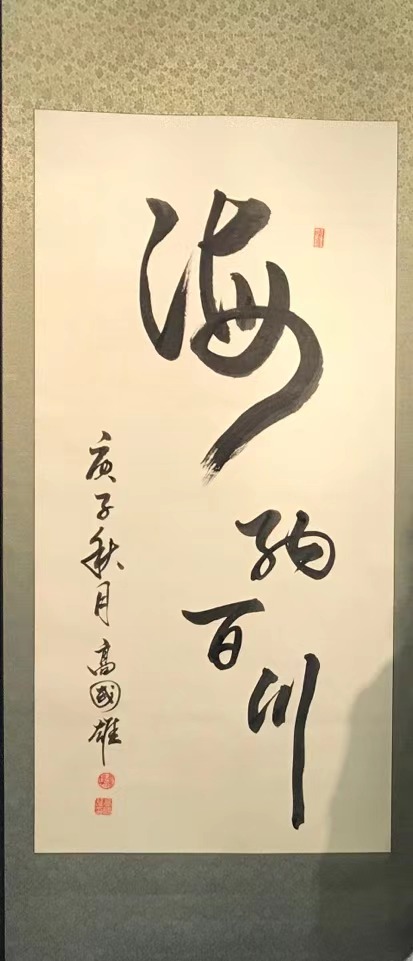 海
纳百川
庚子秋月高國雄